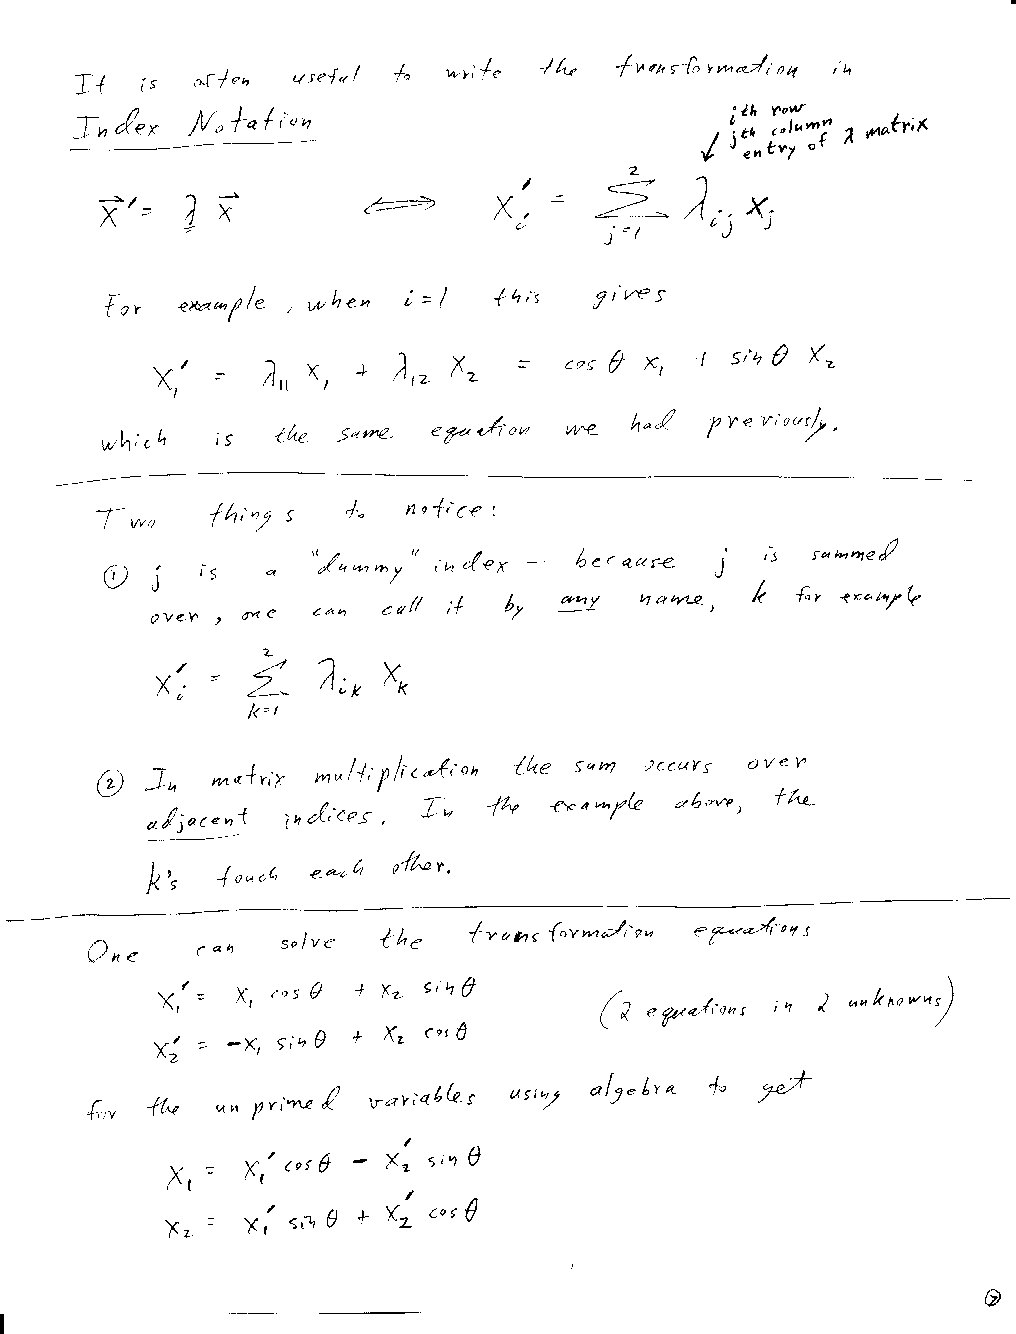 It is often useful to write the transformation in
Index Notation
ith row
jth column
entry of λ matrix
x⃗' = λ x⃗ ⟺ x'ᵢ = Σ_{j=1}^{2} λᵢⱼ xⱼ
For example, when i=1 this gives
x₁' = λ₁₁ x₁ + λ₁₂ x₂ = cos θ x₁ + sin θ x₂
which is the same equation we had previously.
Two things to notice:
① j is a "dummy" index - because j is summed
over, one can call it by any name, k for example
x'ᵢ = Σ_{k=1}^{2} λᵢₖ xₖ
② In matrix multiplication the sum occurs over
adjacent indices. In the example above, the
k's touch each other.
One can solve the transformation equations
x₁' = x₁ cos θ + x₂ sin θ
(2 equations in 2 unknowns)
x₂' = -x₁ sin θ + x₂ cos θ
for the unprimed variables using algebra to get
x₁ = x₁' cos θ - x₂' sin θ
x₂ = x₁' sin θ + x₂' cos θ